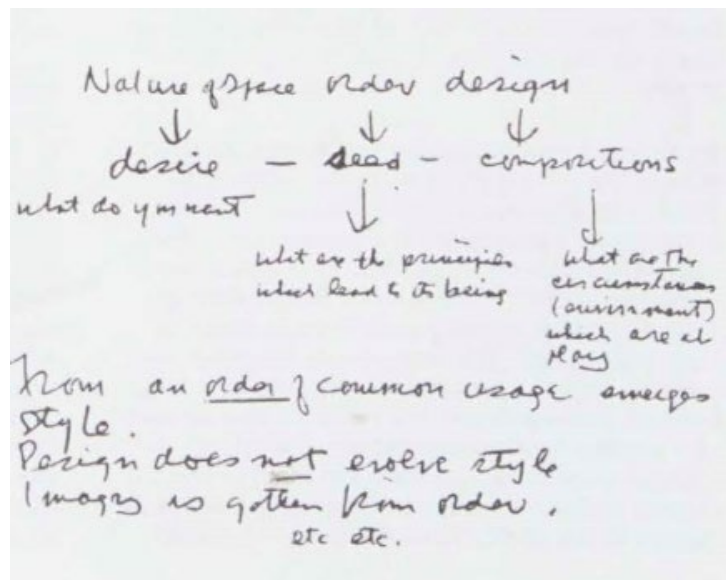 Nature of space order design
↓ ↓ ↓
desire - seed - compositions
what do you want
↓ ↓
what are the principles what are the
which lead to its being circumstances
(environment)
which are at
play
From an order of common usage emerges
style.
Design does not evolve style
Images is gotten from order.
etc etc.